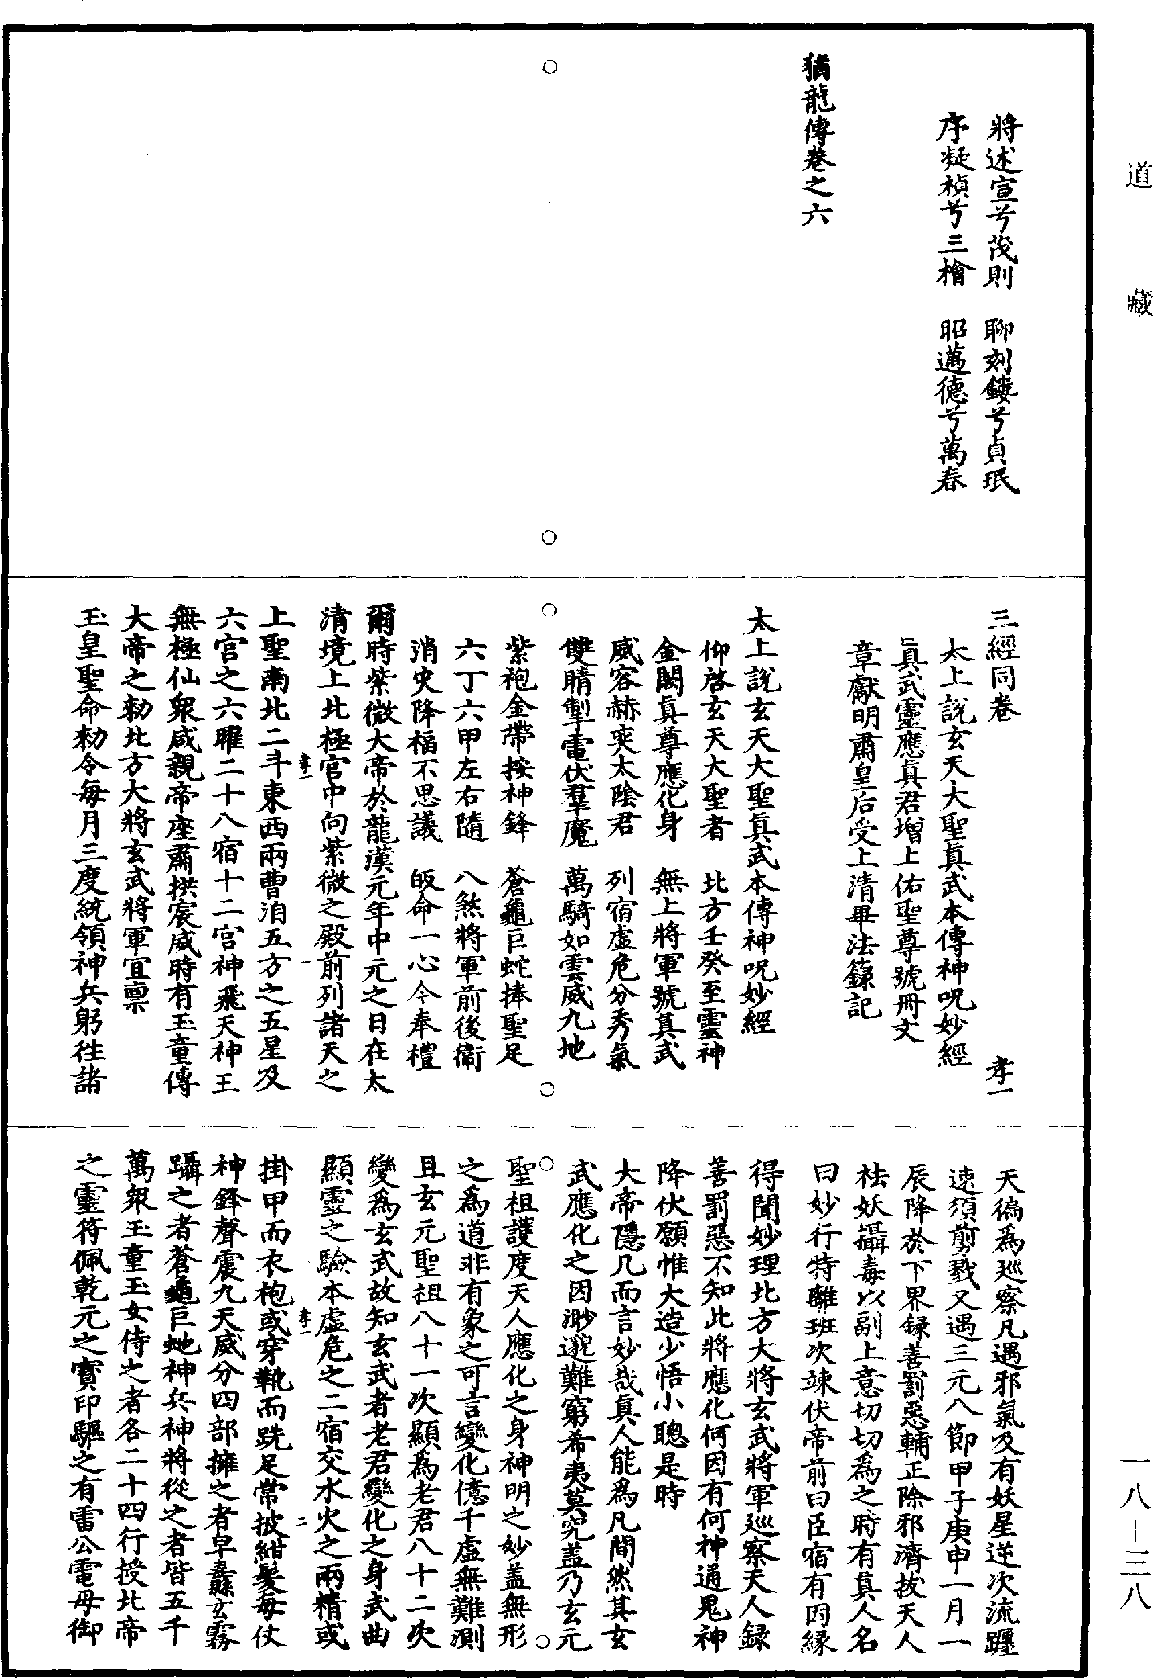 道藏
將述宣兮茂則　聊刻鏤兮貞珉
序凝楨兮三檜　昭邁德兮萬春
猶龍傳卷之六
三經同卷　孝一
太上說玄天大聖真武本傳神呪妙經
真武靈應真君增上佑聖尊號冊文
章獻明肅皇后受上清畢法籙記
太上說玄天大聖真武本傳神呪妙經
仰啓玄天大聖者　北方壬癸至靈神
金闕真尊應化身　無上將軍號真武
威容赫奕太陰君　列宿虛危分秀氣
雙睛掣電伏羣魔　萬騎如雲威九地
紫袍金帶按神鋒　蒼龜巨蛇捧聖足
六丁六甲左右隨　八煞將軍前後衞
消灾降福不思議　皈命一心今奉禮
爾時紫微大帝於龍漢元年中元之日在太
清境上北極宫中向紫微之殿前列諸天之
孝一　一
上聖南北二斗東西兩曹洎五方之五星及
六宫之六曜二十八宿十二宫神飛天神王
無極仙衆咸親帝座肅拱宸威時有玉童傳
大帝之勑北方大將玄武將軍宜禀
玉皇聖命勑令每月三度統領神兵躬往諸
天徧為巡察凡遇邪氣及有妖星逆次流躔
速須剪戮又遇三元八節甲子庚申一月一
辰降於下界録善罰惡輔正除邪濟拔天人
袪妖攝毒以副上意切切為之時有真人名
曰妙行特離班次竦伏帝前曰臣宿有因縁
得聞妙理北方大將玄武將軍巡察天人録
善罰惡不知此將應化何因有何神通鬼神
降伏願惟大造少悟小聰是時
大帝隱几而言妙哉真人能為凡間然其玄
武應化之因渺邈難窮希夷莫究蓋乃玄元
聖祖護度天人應化之身神明之妙蓋無形
之為道非有象之可言變化億千虛無難測
且玄元聖祖八十一次顯為老君八十二次
變為玄武故知玄武者老君變化之身武曲
顯靈之驗本虛危之二宿交水火之兩精或
孝一　二
掛甲而衣袍或穿靴而跣足常披紺髮每仗
神鋒聲震九天威分四部擁之者皁纛玄霧
躡之者蒼龜巨虵神兵神將從之者皆五千
萬衆玉童玉女侍之者各二十四行授北帝
之靈符佩乾元之寶印驅之有雷公電母御
一八—三八